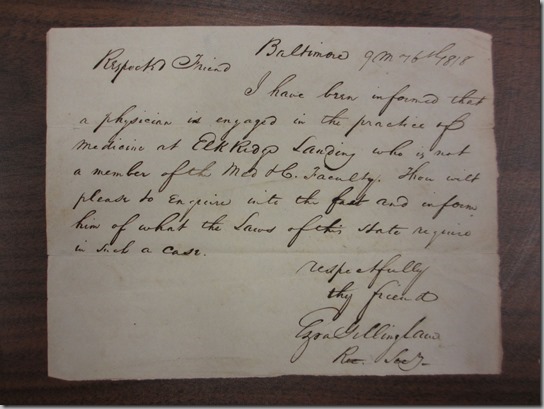 Baltimore 9 m 26th 1818
Respected Friend
I have been informed that
a physician is engaged in the practice of
medicine at Elk Ridge Landing who is not
a member of the Med & C. Faculty. Thou wilt
please to enquire into the fact and inform
him of what the Laws of this State require
in such a case.
respectfully
thy friend
Ezra Gillingham
Rec. Secy.